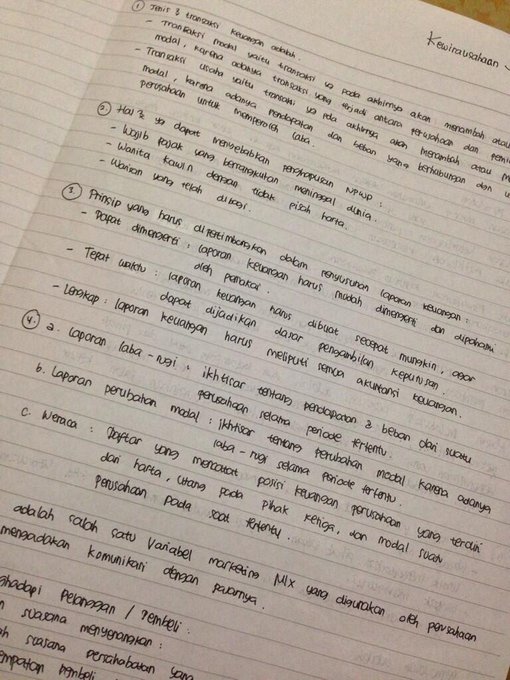 Kewirausahaan
① Jenis 2 transaksi keuangan adalah.
- Transaksi modal yaitu transaksi yg pada akhirnya akan menambah atau
modal, karena adanya transaksi yang terjadi antara perusahaan dan pemi
- Transaksi usaha yaitu transaksi yg pda akhirnya akan menambah atau m
modal, karena adanya pendapatan dan beban yang berhubungan dan u
perusahaan untuk memperoleh laba.
② Hal 2 yg dapat menyebabkan penghapusan NPWP :
- Wajib pajak yang bersangkutan meninggal dunia.
- Wanita kawin dengan tidak pisah harta.
- Warisan yang telah dibagi.
③ Prinsip yang harus dipertimbangkan dalam penyusunan laporan keuangan :
- Dapat dimengerti : laporan keuangan harus mudah dimengerti dan dipahami
oleh pemakai.
- Tepat waktu : laporan keuangan harus dibuat secepat mungkin, agar
dapat dijadikan dasar pengambilan keputusan.
- Lengkap : laporan keuangan harus meliputi semua akuntansi keuangan.
④ a. Laporan laba-rugi : ikhtisar tentang pendapatan & beban dari suatu
perusahaan selama periode tertentu.
b. Laporan perubahan modal : ikhtisar tentang perubahan modal karena adanya
laba-rugi selama periode tertentu.
c. Neraca : Daftar yang mencatat posisi keuangan perusahaan yang terdiri
dari harta, utang pada pihak ketiga, dan modal suatu
perusahaan pada saat tertentu.
adalah salah satu variabel marketing MIX yang digunakan oleh perusahaan
mengadakan komunikasi dengan pasarnya.
ghadapi pelanggan / pembeli.
n suasana menyenangkan :
ah suasana persahabatan yang
empatan pembeli